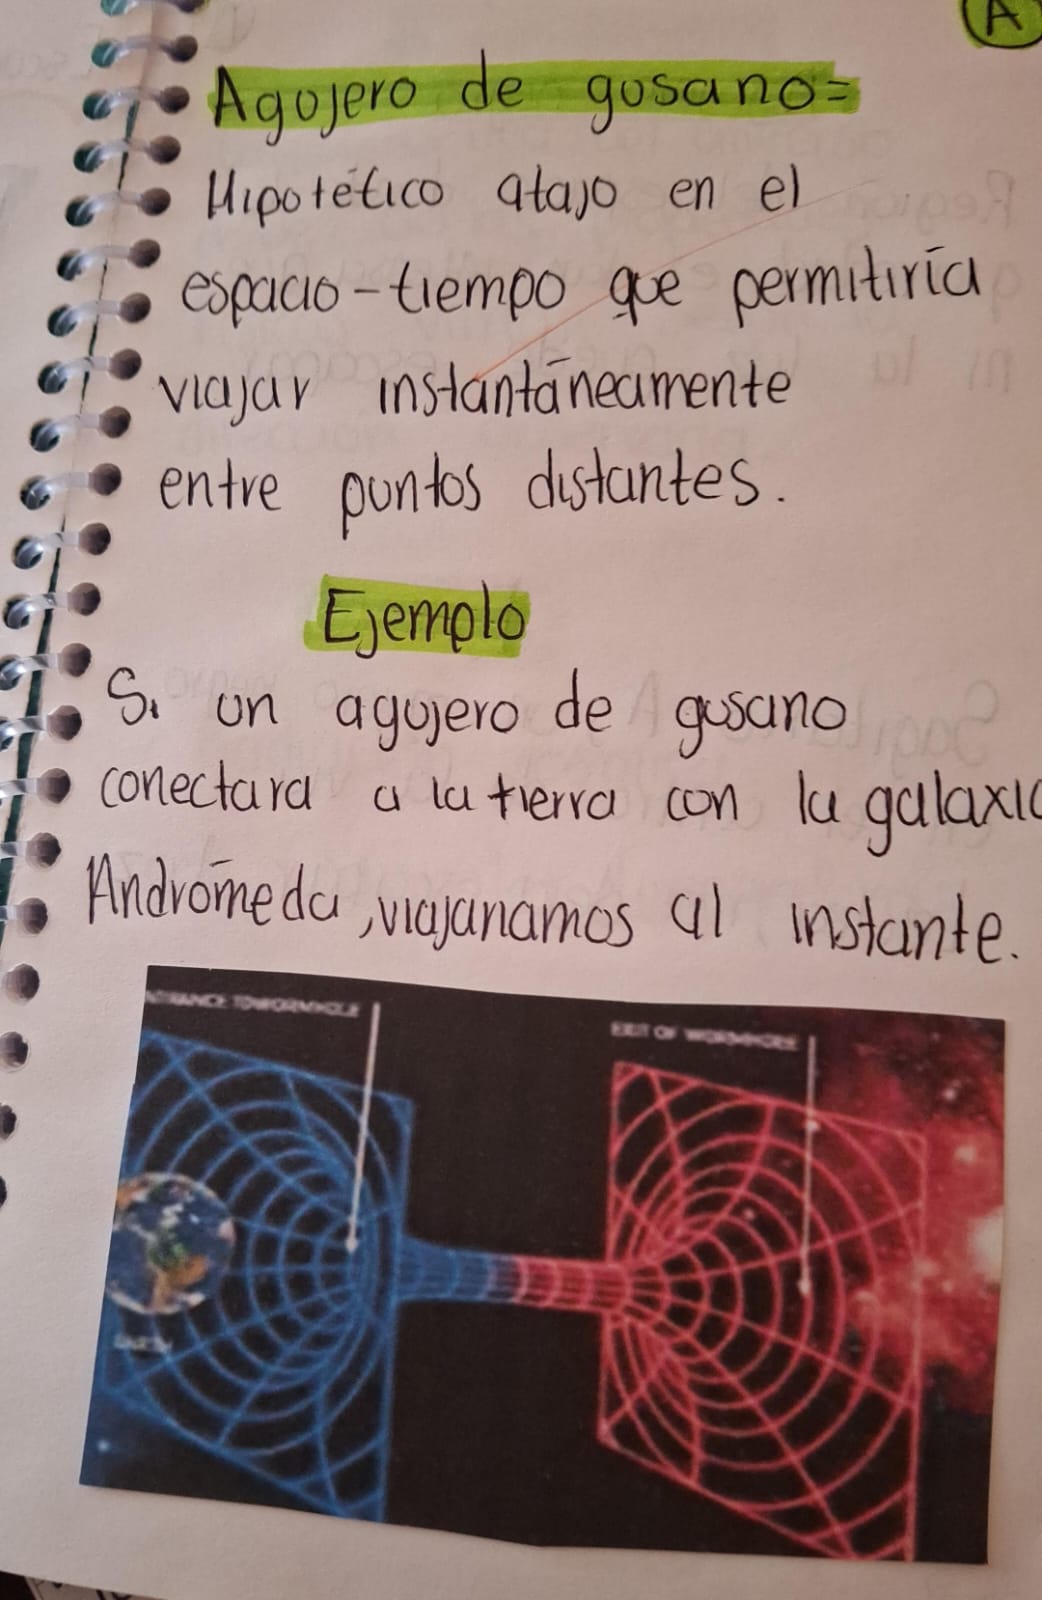 A
Agujero de gusano=
Hipotético atajo en el
espacio-tiempo que permitiría
viajar instantáneamente
entre puntos distantes.
Ejemplo
Si un agujero de gusano
conectara a la tierra con la galaxia
Andrómeda, viajariamos al instante.
ENTRANCE TO WORMHOLE
EXIT OF WORMHOLE
EARTH